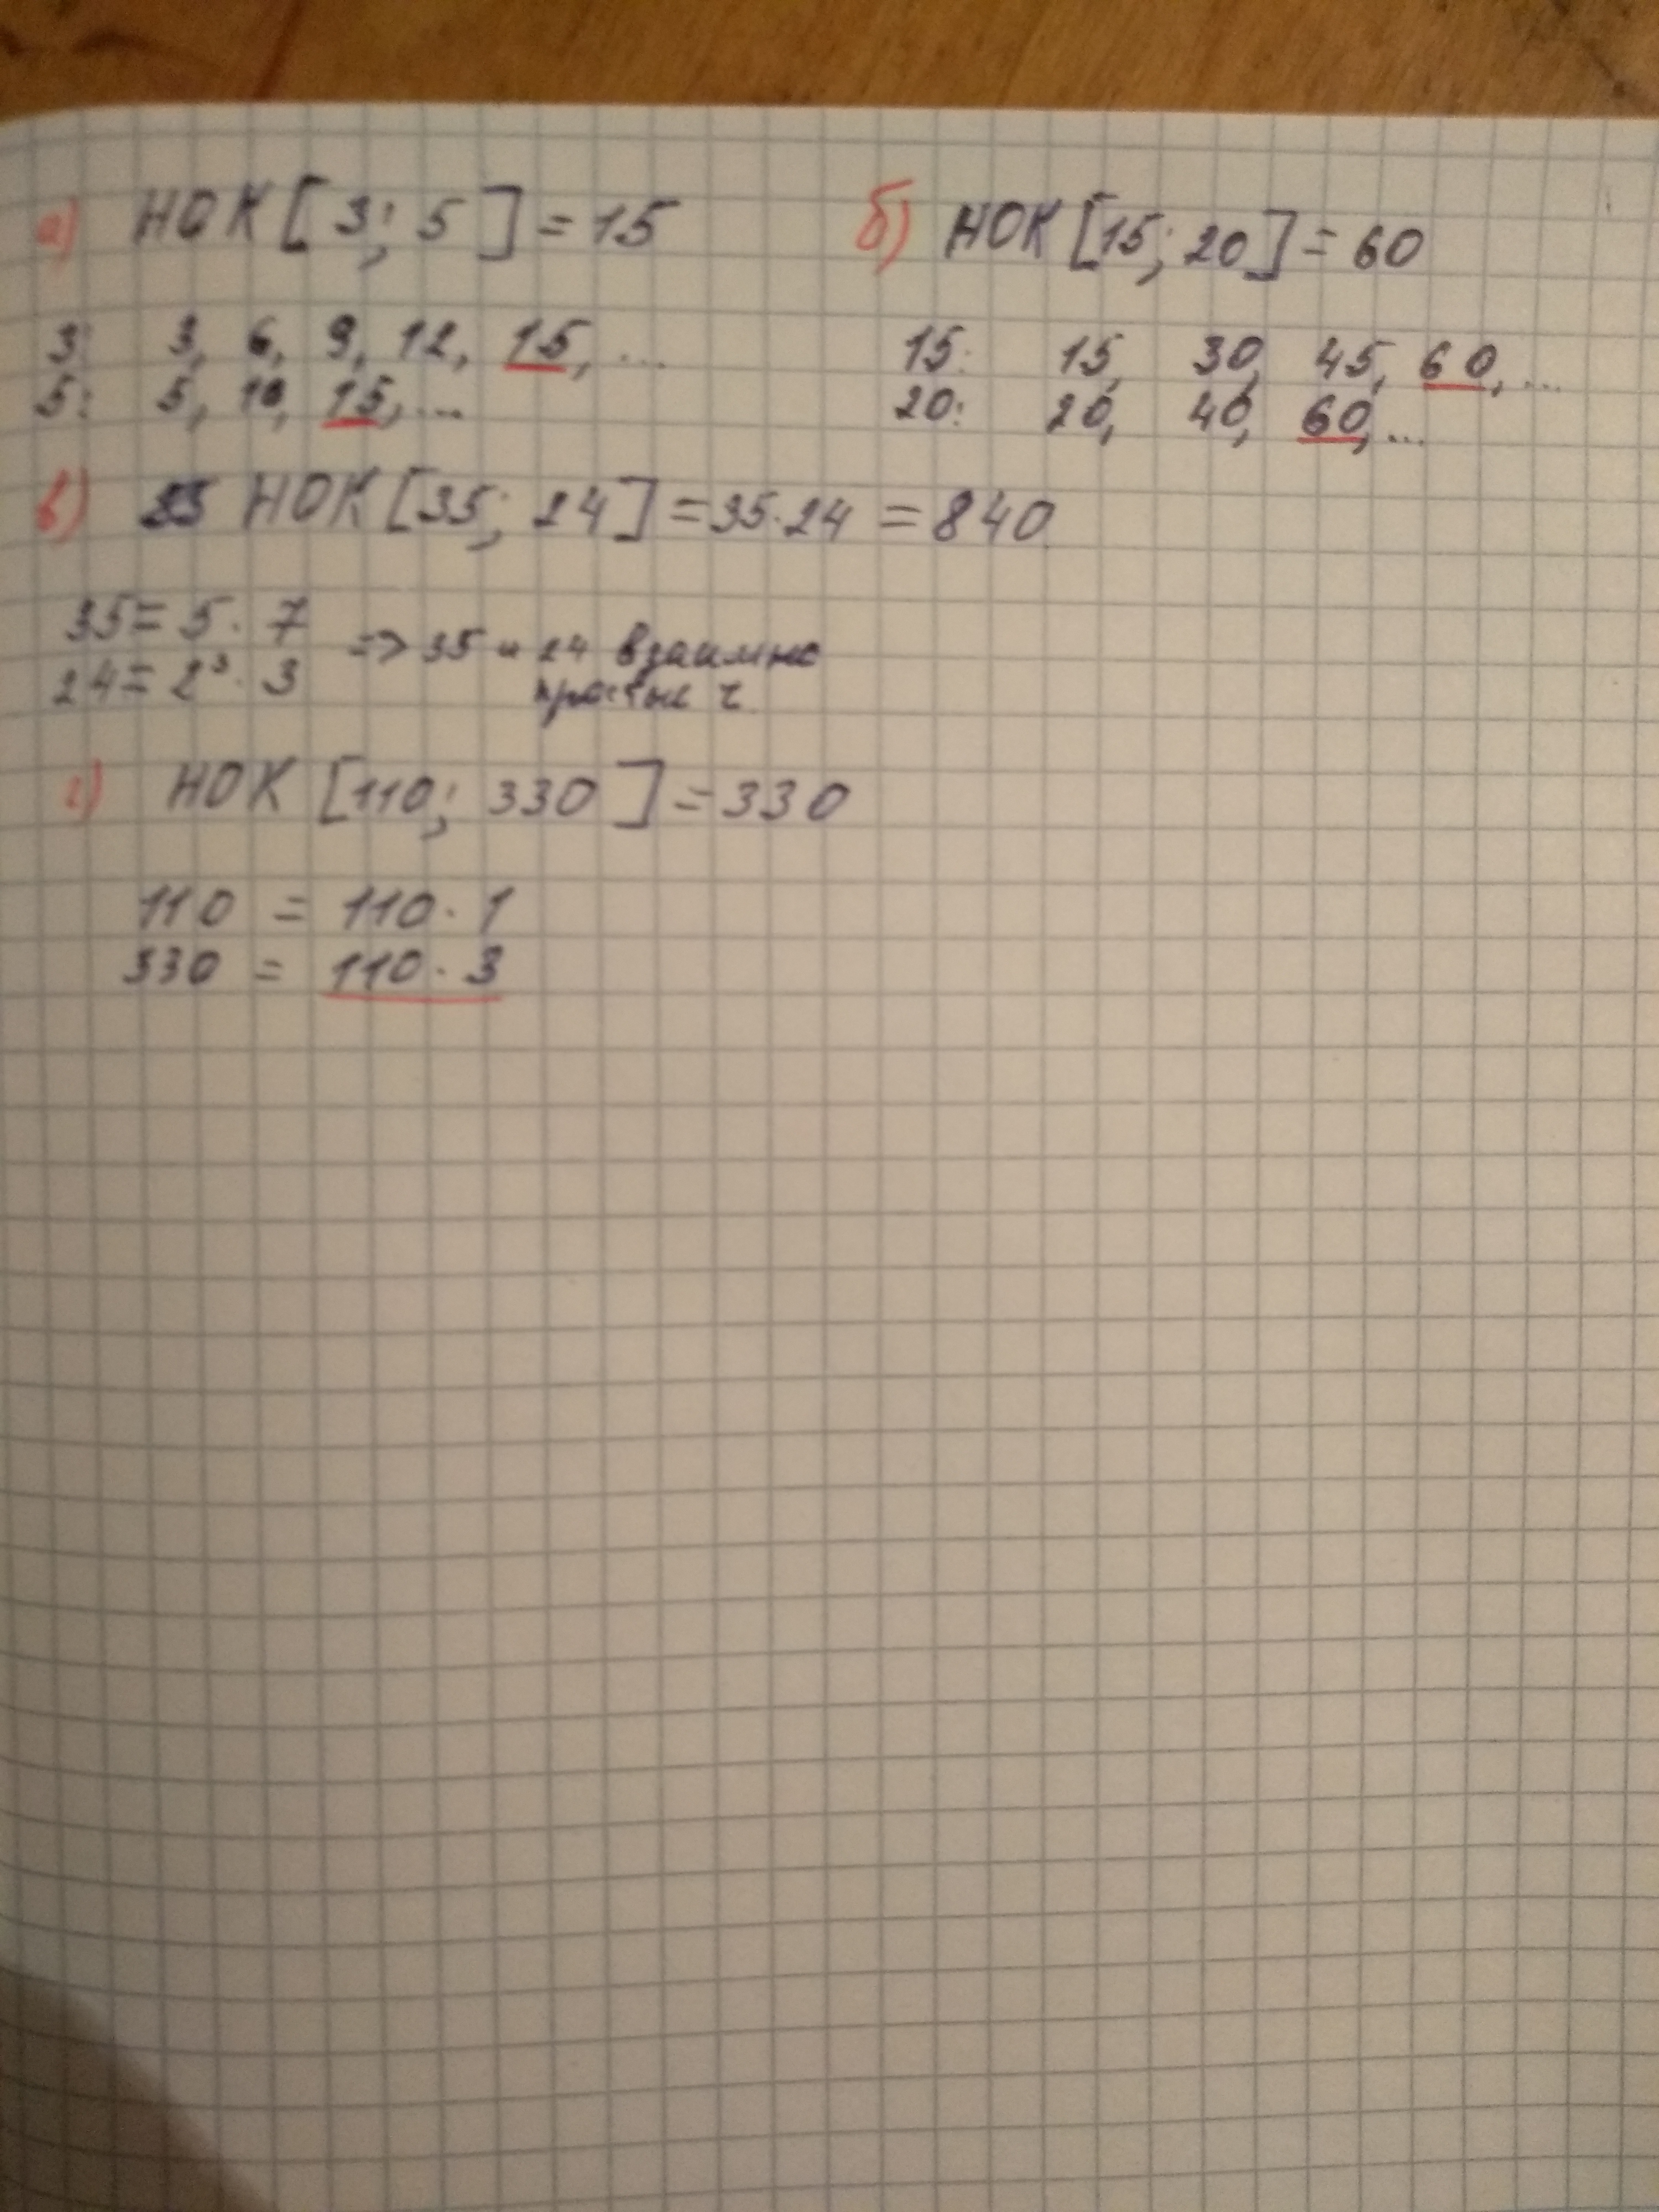 а) НОК [3; 5] = 15
3: 3, 6, 9, 12, 15, ...
5: 5, 10, 15, ...
б) НОК [15; 20] = 60
15: 15, 30, 45, 60, ...
20: 20, 40, 60, ...
в) НОК [35; 24] = 35·24 = 840
35 = 5 · 7
24 = 2³ · 3
=> 35 и 24 взаимно
простые ч.
г) НОК [110; 330] = 330
110 = 110 · 1
330 = 110 · 3